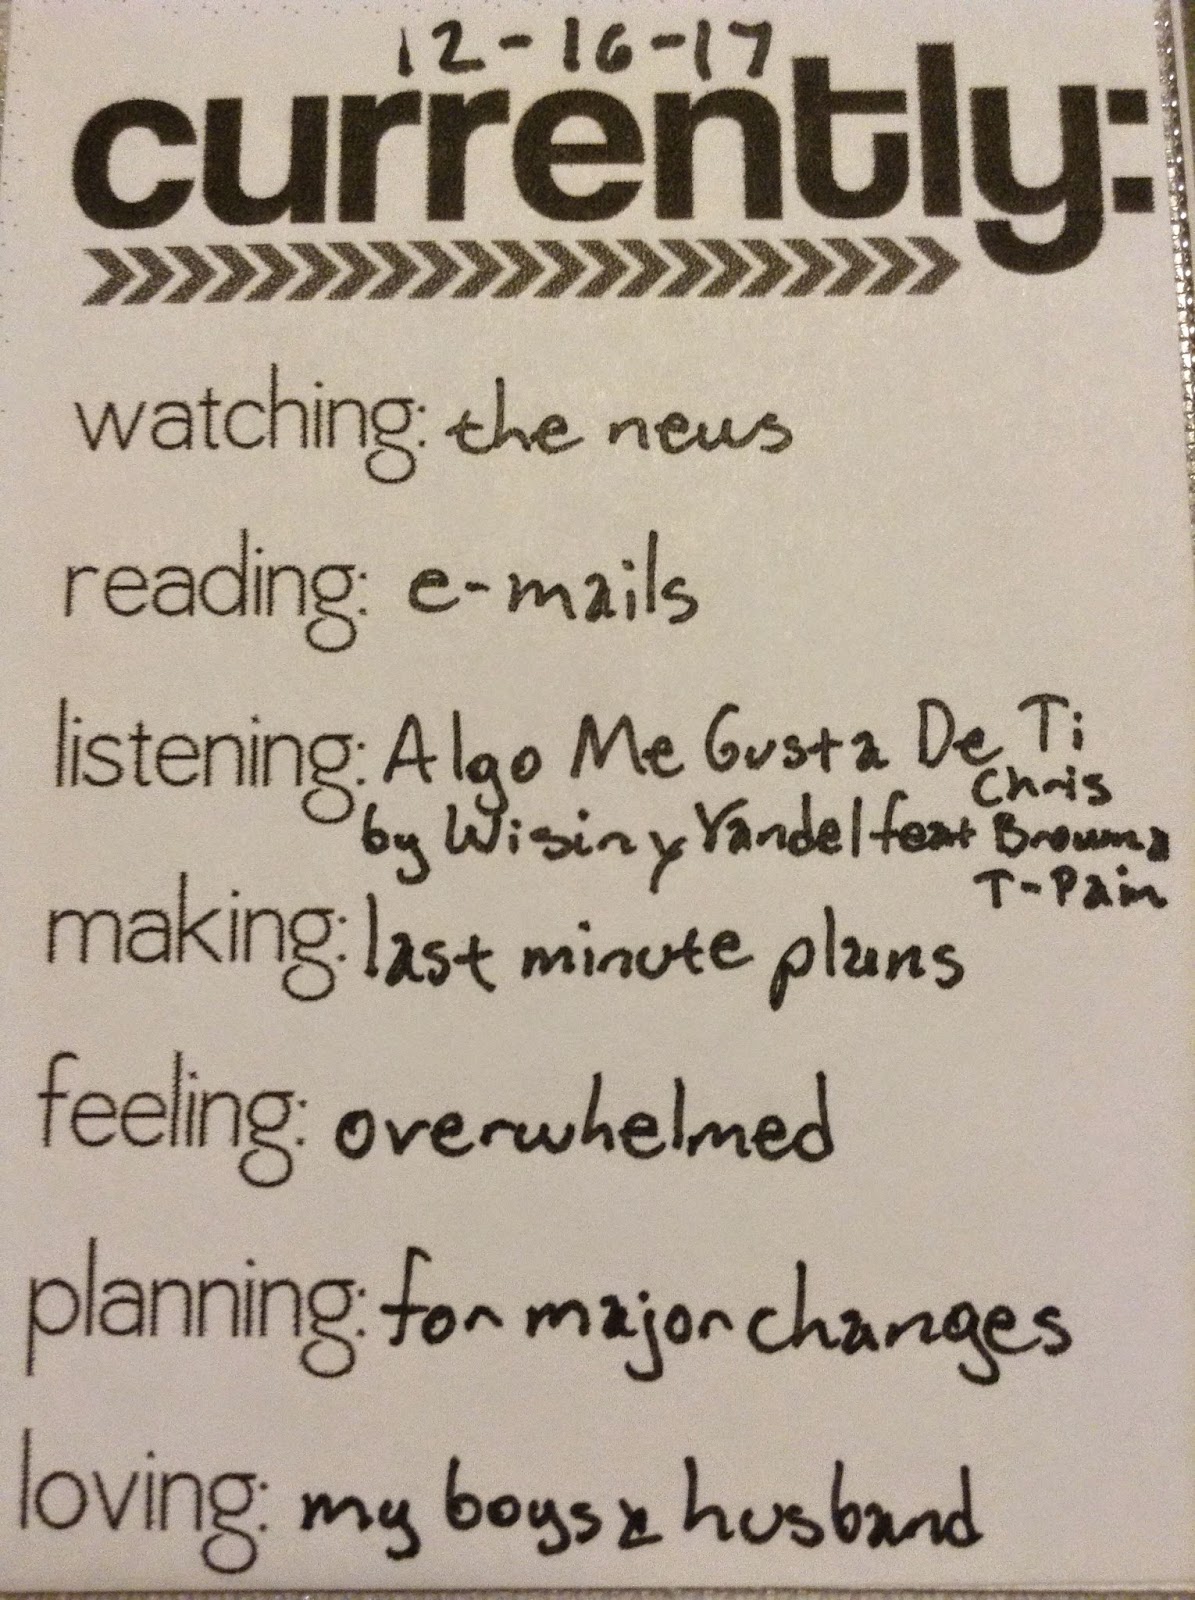 12-16-17
currently:
watching: the news
reading: e-mails
listening: Algo Me Gusta De Ti
by Wisin y Yandel feat Chris
Brown &
T-Pain
making: last minute plans
feeling: overwhelmed
planning: for major changes
loving: my boys & husband